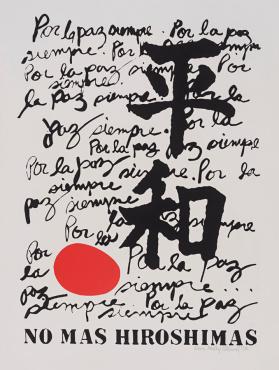 Por la paz siempre. Por la paz
siempre. Por la paz siempre.
Por la paz siempre. Por
la paz siempre. Por la
paz siempre. Por la
Por la paz siempre
Por la paz siempre. Por la
siempre Por la paz
paz siempre. Por la
Por la paz siempre
Por la siempre
Por Por la paz
la siempre ...
paz
siempre. Por la paz
siempre
平和
NO MAS HIROSHIMAS